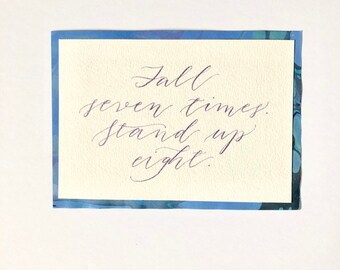 Fall
seven times.
Stand up
eight.